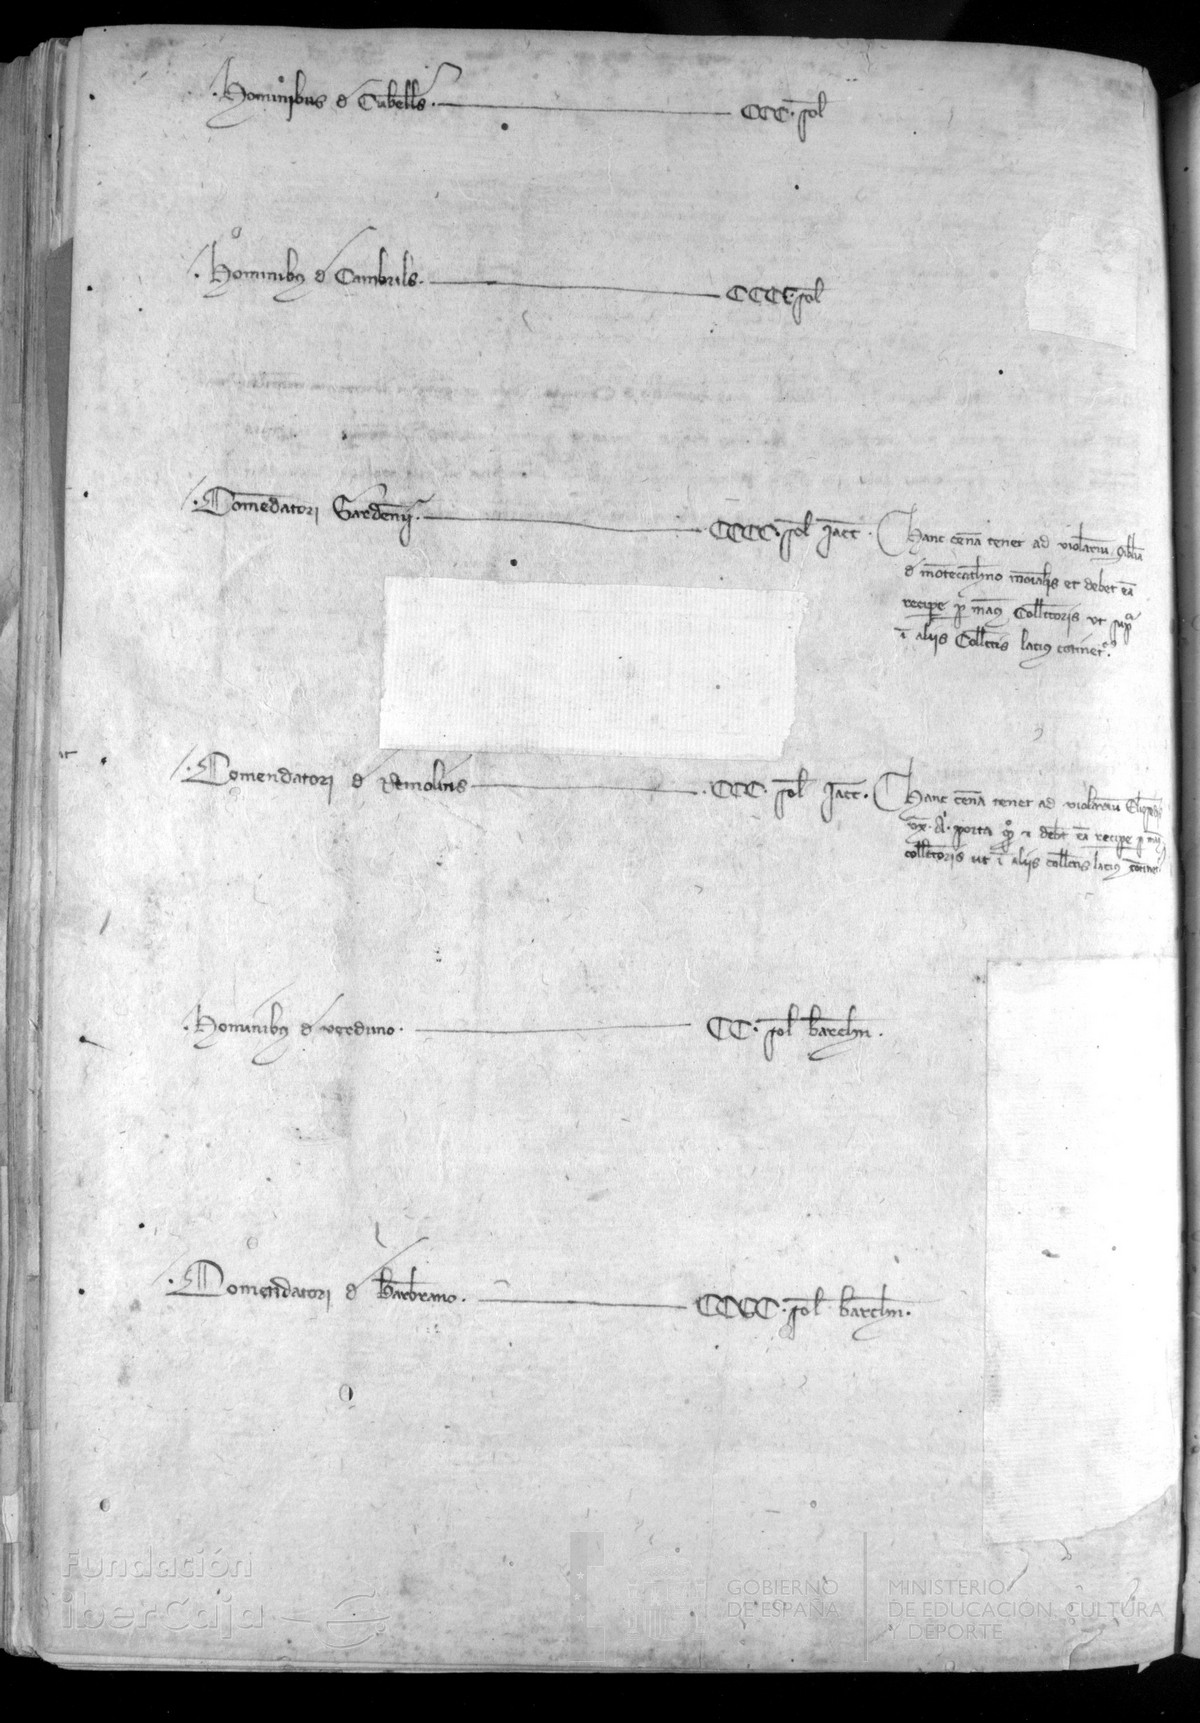 Hominibus d Cubells. CCC. sol
Hominibꝫ d Cambrils. CCCC. sol
Comedatori Gardenij. CCCC. sol Jacc. Hanc cena tenet ad violariu
d motecatheno et debet ea
recipe p man9 Collectoris ut sup
i aliis Collectis laci9 cotinet.
Comendatori d Remolins CCC. sol Jacc. Hanc cena tenet ad violariu
ux. A. porta debet ea recipe p
collectoris ut i aliis collectis laci9 cotinet
Hominibꝫ d verduno. CC. sol barchn.
Comendatori d Barberano. CCCC. sol barchn.
Fundación
iberCaja
GOBIERNO
DE ESPAÑA
MINISTERIO
DE EDUCACIÓN, CULTURA
Y DEPORTE